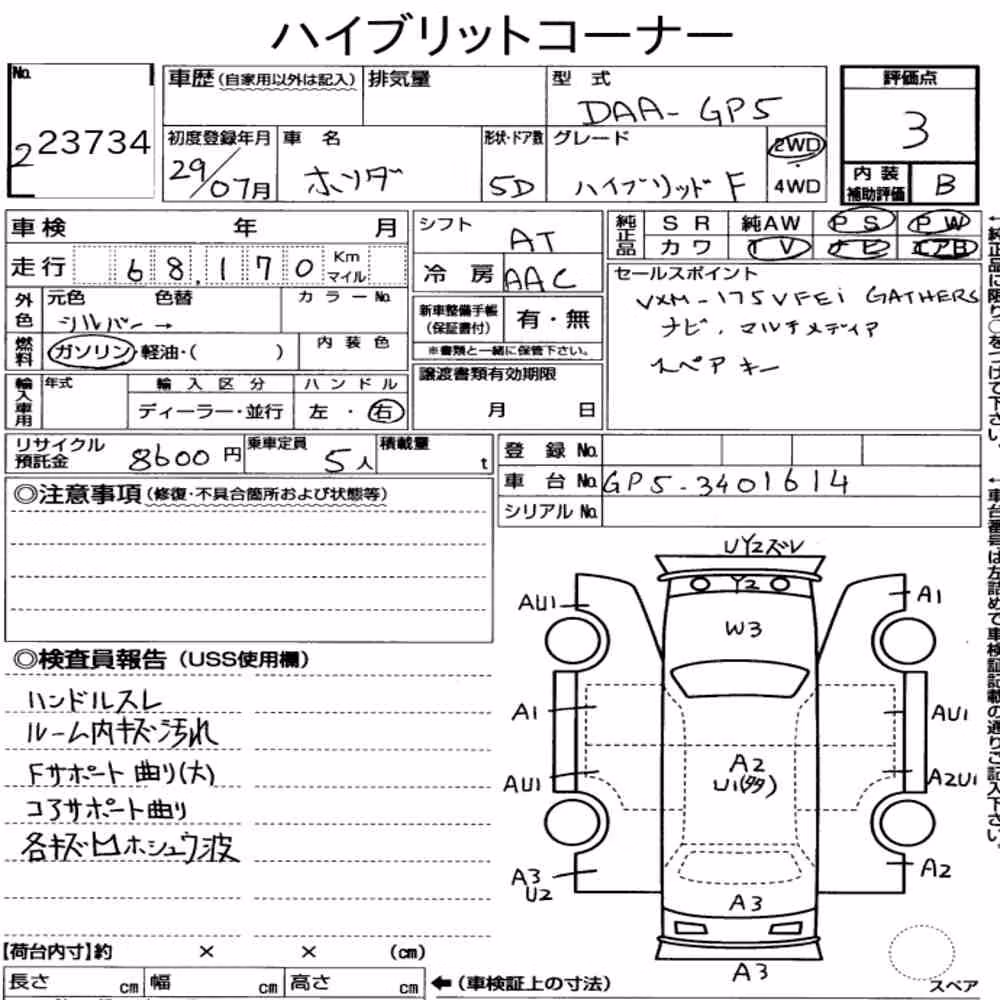 ハイブリットコーナー
No.
223734
車歴(自家用以外は記入) 排気量 型式 DAA-GP5
評価点
3
内装補助評価 B
初度登録年月 29/07月
車名 ホンダ
形状・ドア数 5D
グレード ハイブリッドF
2WD
・
4WD
車検 年 月
走行 68,170 Km マイル
外色 元色 色替 カラーNo.
シルバー →
燃料 ガソリン・軽油・( ) 内装色
輸入車用 年式 輸入区分 ハンドル
ディーラー・並行 左・右
シフト AT
冷房 AAC
新車整備手帳(保証書付) 有・無
※書類と一緒に保管下さい。
譲渡書類有効期限
月 日
純正品 SR 純AW PS PW
カワ TV ナビ エアB
セールスポイント
VXM-175VFEi GATHERS
ナビ、マルチメディア
スペアキー
←純正品に限り○をつけて下さい。
リサイクル預託金 8600円
乗車定員 5人
積載量 t
登録No.
車台No. GP5-3401614
シリアルNo.
←車台番号は左詰めで車検証記載の通りご記入下さい。
◎注意事項(修復・不具合箇所および状態等)
◎検査員報告(USS使用欄)
ハンドルスレ
ルーム内キズ汚れ
Fサポート曲り(大)
コアサポート曲り
各キズ凹ホシュウ波
UY2ズレ
Y2
AU1
A1
W3
A1
AU1
A2
U1(多)
AU1
A2U1
A3
U2
A2
A3
A3
スペア
【荷台内寸】約 × × (cm)
長さ cm 幅 cm 高さ cm ←(車検証上の寸法)